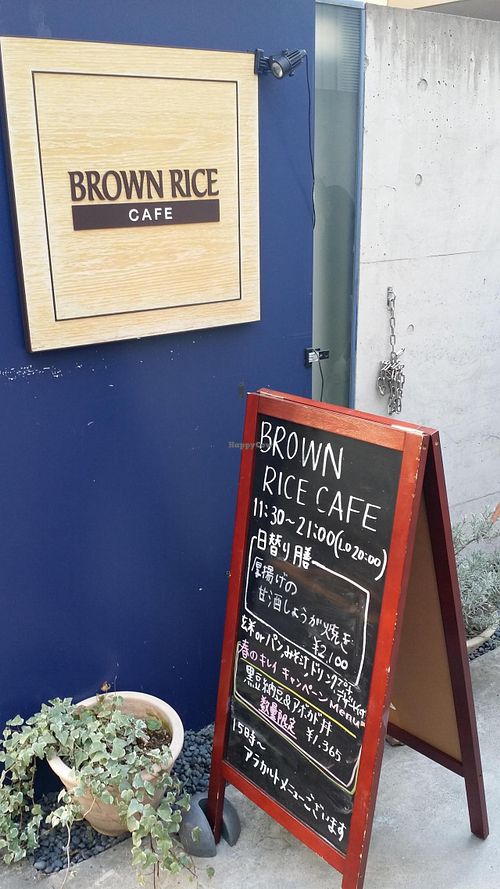 BROWN RICE
CAFE
HappyCow
BROWN
RICE CAFE
11:30〜21:00(LO 20:00)
日替り膳
厚揚げの
甘酒しょうが焼き
¥2,100
玄米orパン みそ汁 ドリンク プチデザート
春のキレイキャンペーンMenu
黒豆納豆&アボカド丼
数量限定 ¥1,365
15時〜
アラカルトメニューございます